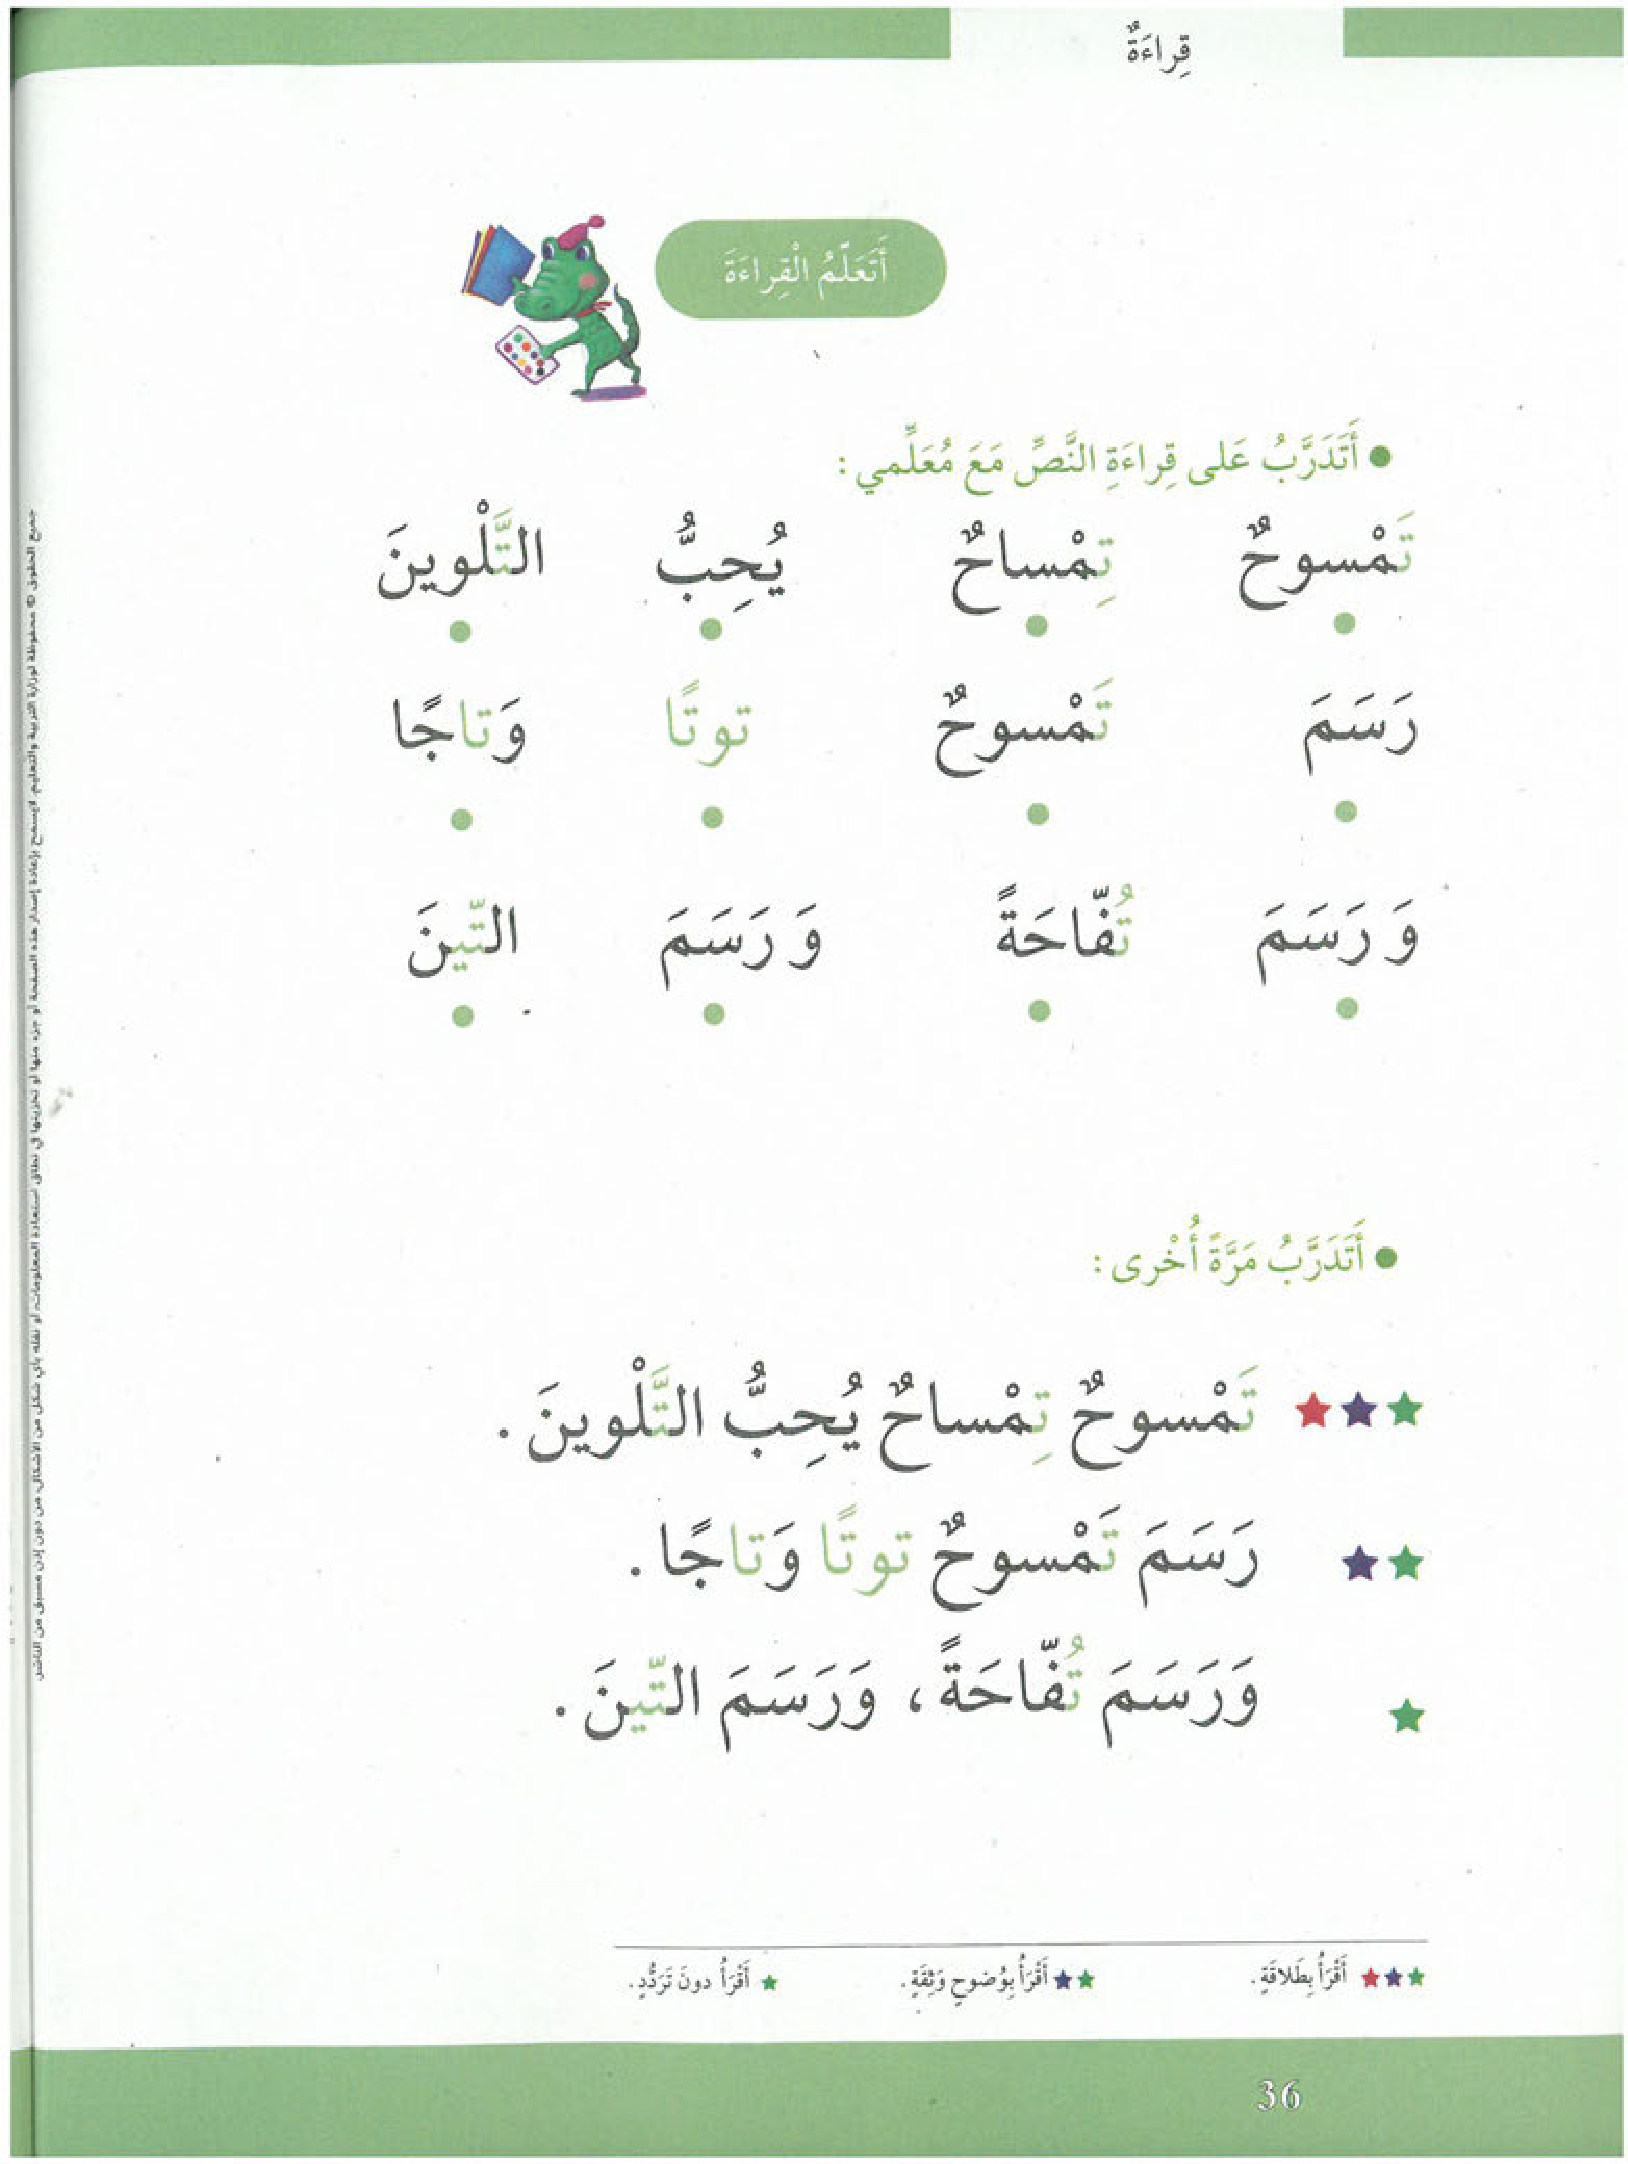 قِراءَةٌ
أَتَعَلَّمُ الْقِراءَةَ
● أَتَدَرَّبُ عَلى قِراءَةِ النَّصِّ مَعَ مُعَلِّمي :
تَمْسوحٌ تِمْساحٌ يُحِبُّ التَّلْوينَ
رَسَمَ تَمْسوحٌ توتًا وَتاجًا
وَ رَسَمَ تُفّاحَةً وَ رَسَمَ التّينَ
● أَتَدَرَّبُ مَرَّةً أُخْرى :
تَمْسوحٌ تِمْساحٌ يُحِبُّ التَّلْوينَ .
رَسَمَ تَمْسوحٌ توتًا وَتاجًا .
وَرَسَمَ تُفّاحَةً ، وَرَسَمَ التّينَ .
★★★ أَقْرَأُ بِطَلاقَةٍ . ★★ أَقْرَأُ بِوُضوحٍ وَثِقَةٍ . ★ أَقْرَأُ دونَ تَرَدُّدٍ .
36
جميع الحقوق © محفوظة لوزارة التربية والتعليم. لا يسمح بإعادة إصدار هذه الصفحة أو جزء منها أو تخزينها في نطاق استعادة المعلومات، أو نقله بأي شكل من الأشكال، من دون إذن مسبق من الناشر.